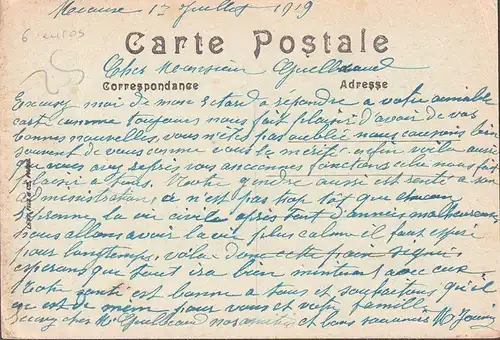 Meaux 17 Juillet 1919
6 euros
Carte Postale
Cher Monsieur Guilbeaud
Correspondance Adresse
Excusez moi de mon retard a repondre a votre aimable
cart comme toujours nous fait plaisir d'avoir de vos
bonnes nouvelles, vous n'été pas oublié nous causons bien
souvent de vous comme vous le mérité enfin voila aussi
que vous avez repris vos anciennes fonctions cela nous fait
plaisir a tous. Votre gendre aussi est rentré a son
administration, ce n'est pas trop tot que chacun
reprenne la vie civile après tant d'années malheureuses
nous allons avoir la vie plus calme il faut espéré
pour longtemps, voila donc cette paix signée
esperons que tout ira bien maintenant avec eux
Notre santé est bonne a tous et souhaitons qu'il
en est de meme pour vous et votre famille
Recevez cher Mr Guilbeaud nos amitiés et bons souvenirs